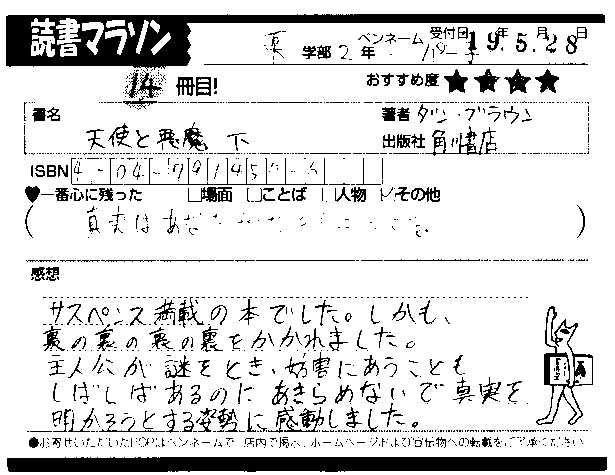 読書マラソン
薬 学部 2 年 ペンネーム 受付日 19年 5月 28日
14 冊目! おすすめ度 ★★★★
書名 天使と悪魔 下
著者 ダン・ブラウン
出版社 角川書店
ISBN 4-04-791456-
♥一番心に残った □場面 □ことば □人物 ☑その他
( 真実はあなた )
感想
サスペンス満載の本でした。しかも、
裏の裏の裏の裏をかかれました。
主人公が謎をとき、妨害にあうことも
しばしばあるのに あきらめないで 真実を
明かそうとする姿勢に感動しました。
●お寄せいただいたPOPはペンネームで、店内で掲示、ホームページおよび宣伝物への転載をご了承ください